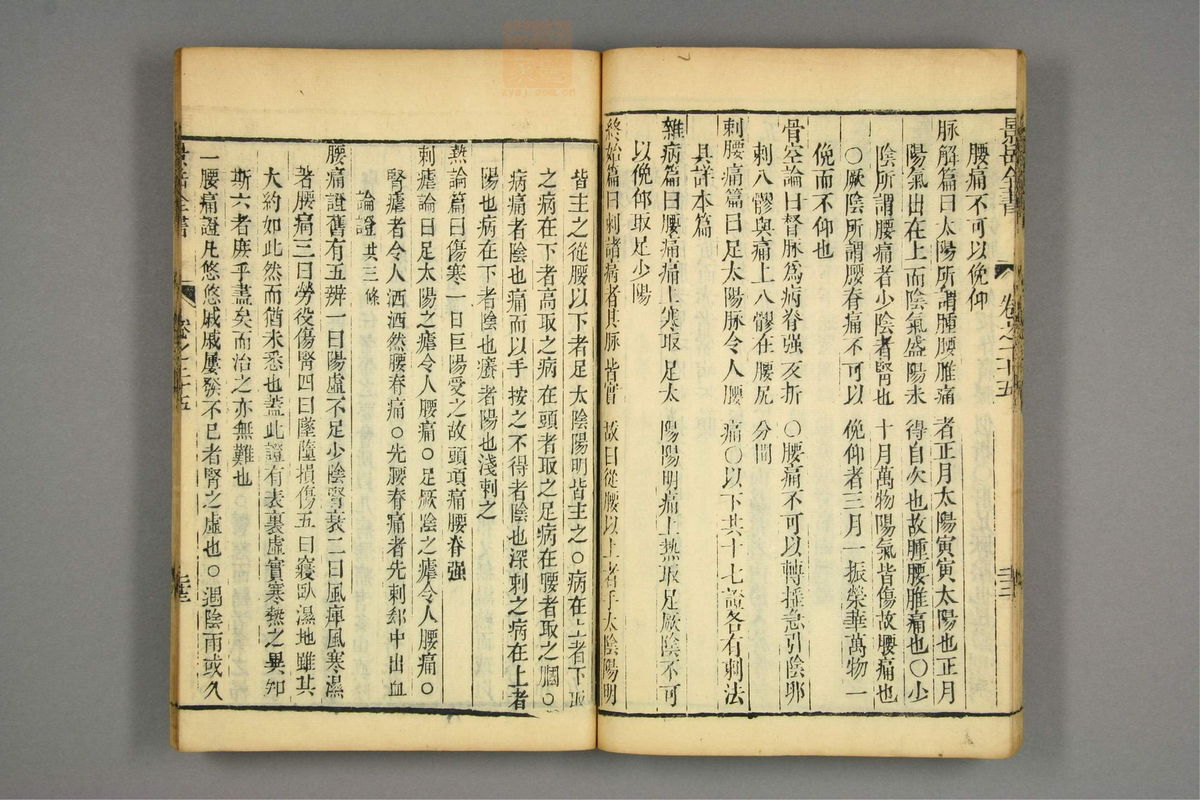 景岳全書 卷之二十五
腰痛不可以俛仰
脉解篇曰太陽所謂腫腰脽痛者正月太陽寅寅太陽也正月
陽氣出在上而陰氣盛陽未得自次也故腫腰脽痛也○少
陰所謂腰痛者少陰者腎也十月萬物陽氣皆傷故腰痛也
○厥陰所謂腰脊痛不可以俛仰者三月一振榮華萬物一
俛而不仰也
骨空論曰督脉爲病脊强反折○腰痛不可以轉搖急引陰卵
刺八髎與痛上八髎在腰尻分間
刺腰痛篇曰足太陽脉令人腰痛○以下共十七證各有刺法
具詳本篇
雜病篇曰腰痛痛上寒取足太陽陽明痛上熱取足厥陰不可
以俛仰取足少陽
終始篇曰刺諸痛者其脉皆實故曰從腰以上者手太陰陽明
皆主之從腰以下者足太陰陽明皆主之○病在上者下取
之病在下者高取之病在頭者取之足病在腰者取之膕○
病痛者陰也痛而以手按之不得者陰也深刺之病在上者
陽也病在下者陰也癢者陽也淺刺之
熱論篇曰傷寒一日巨陽受之故頭項痛腰脊强
刺瘧論曰足太陽之瘧令人腰痛○足厥陰之瘧令人腰痛○
腎瘧者令人洒洒然腰脊痛○先腰脊痛者先刺郄中出血
論證共三條
腰痛證舊有五辨一曰陽虛不足少陰腎衰二曰風痺風寒濕
著腰痛三曰勞役傷腎四曰墜墮損傷五曰寢臥濕地雖其
大約如此然而猶未悉也蓋此證有表裏虛實寒熱之異知
斯六者庶乎盡矣而治之亦無難也
一腰痛證凡悠悠戚戚屢發不已者腎之虛也○遇陰雨或久
景岳全書 卷之二十五